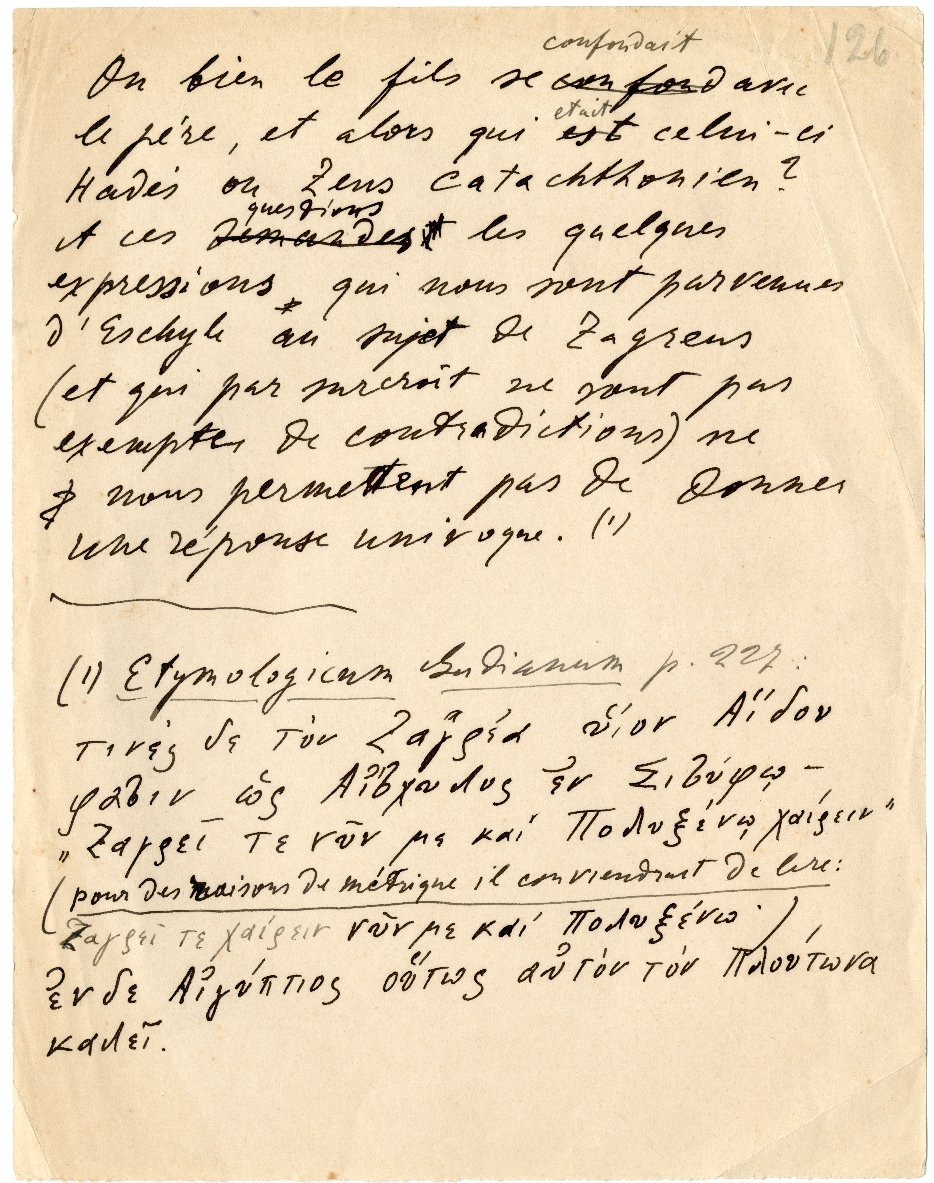 126.
confondait
Ou bien le fils se confond avec
était
le père, et alors qui est celui-ci
Hadès ou Zeus Catachthonien?
questions
A ces demandes les quelques
expressions, qui nous sont parvenues
d'Eschyle au sujet de Zagreus
(et qui par surcroît ne sont pas
exemptes de contradictions) ne
nous permettent pas de donner
une réponse univoque. (1)
(1) Etymologicum Gudianum p. 227:
τινές δε τόν Ζαγρέα ὕιον Ἀΐδου
φασιν ὡς Αἰσχυλος ἐν Σισύφῳ –
„Ζαγρεῖ τε νῦν με καί Πολυξένῳ χαίρειν"
(pour des raisons de métrique il conviendrait de lire:
Ζαγρεῖ τε χαίρειν νῦν με καί Πολυξένῳ.)
ἐν δε Αἰγύπτιος οὕτως αὐτόν τόν Πλούτωνα
καλεῖ.